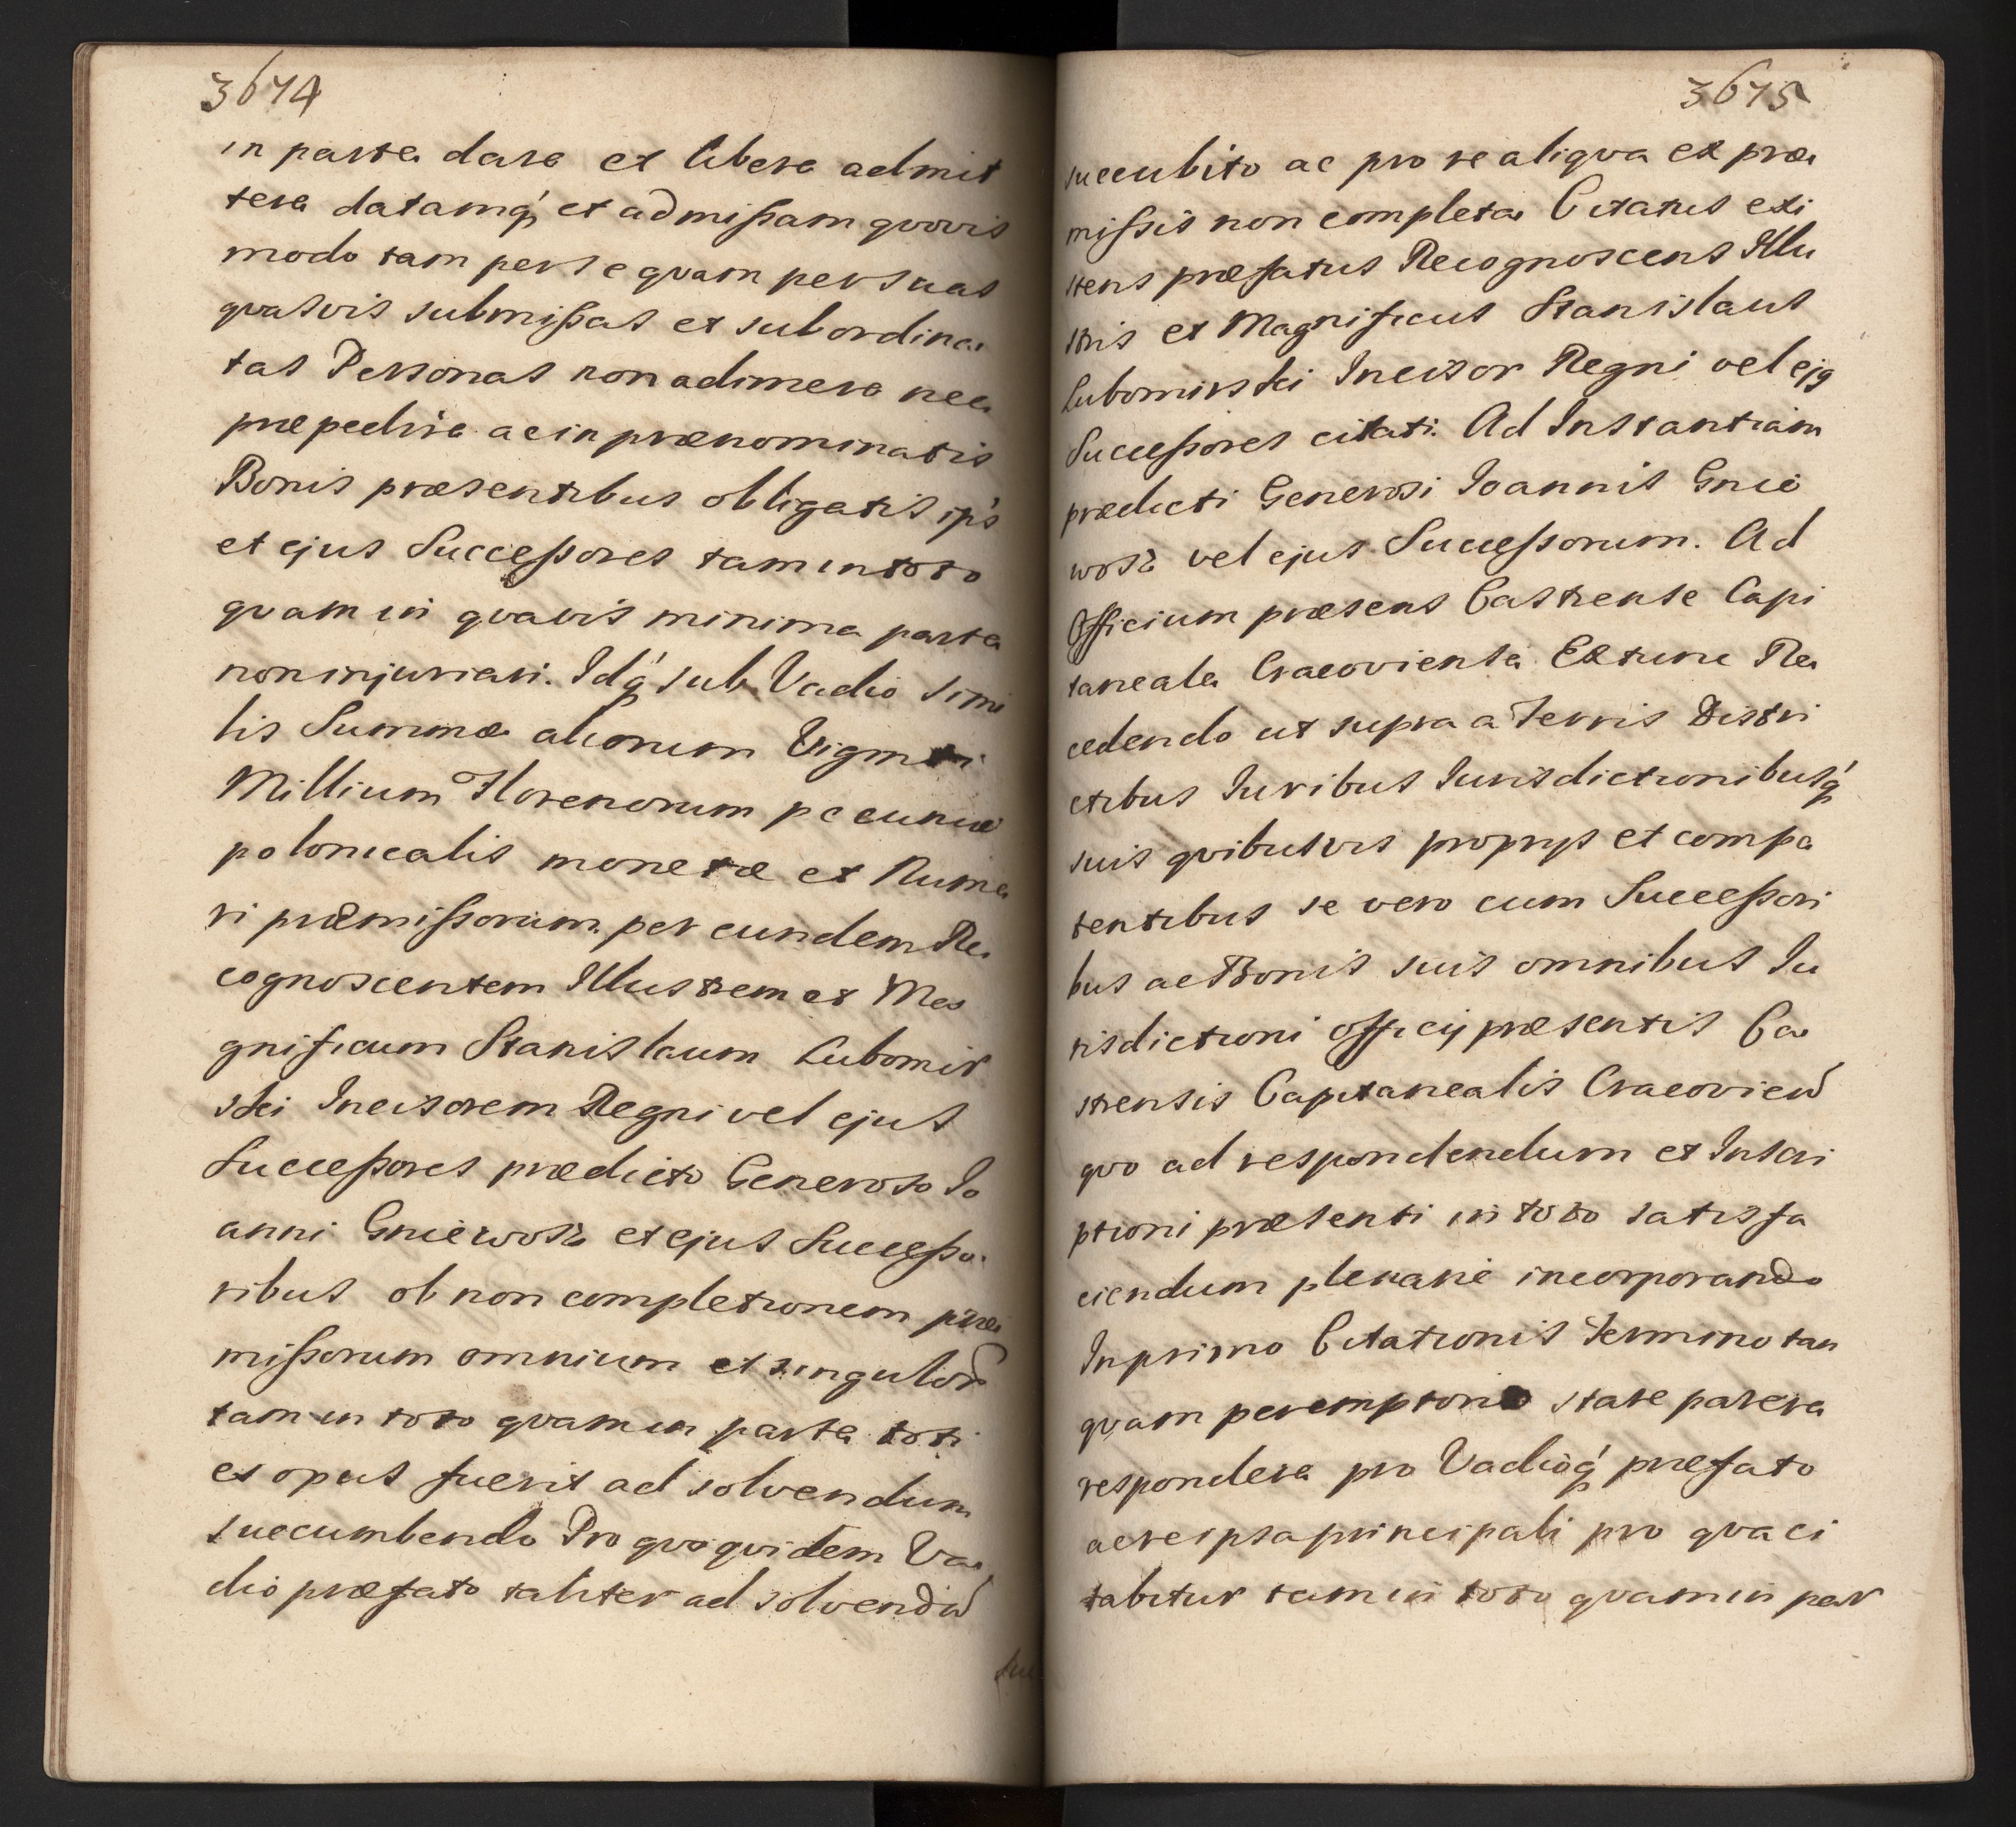 3674
in parte dare et libere admit
tere datamq́ et admißam qvovis
modo tam per se qvam per suas
qvasvis submißas et subordina
tas Personas non adimere nec
præpedire ac in prænominatis
Bonis præsentibus obligatis ip̄s
et ejus Succeßores tam in toto
qvam in qvavis minima parte
non injuriari. Idq́ sub Vadio simi
lis Summæ aliorum Viginti
Millium Florenorum pecuniæ
polonicalis monetæ et Nume
ri præmißorum per eundem Re
cognoscentem Illustrem et Ma
gnificum Stanislaum Lubomir
ski Incisorem Regni vel ejus
Succeßores prædicto Generoso Jo
anni Gniewosz et ejus Succeßo
ribus ob non completionem præ
mißorum omnium et singulor̄
tam in toto qvam in parte toti
es opus fuerit ad solvendum
succumbendo Pro qvo qvidem Va
dio præfato taliter ad solvendū
suc
3675
succubito ac pro re aliqva ex præ
mißis non completa Citatus exi
stens præfatus Recognoscens Illu
stris et Magnificus Stanislaus
Lubomirski Incisor Regni vel ejg
Succeßores citati. Ad Instantiam
prædicti Generosi Joannis Gnie
wosz vel ejus Succeßorum. Ad
Officium præsens Castrense Capi
taneale Cracoviense Extunc Re
cedendo ut supra a Terris Distri
ctibus Juribus Jurisdictionibusq́
suis qvibusvis propryis et compe
tentibus se vero cum Succeßori
bus ac Bonis suis omnibus Ju
risdictioni officij præsentis Ca
strensis Capitanealis Cracovien̄
qvo ad respondendum et Inscri
ptioni præsenti in toto satisfa
ciendum plenariè incorporando
In primo Citationis Termino tan
qvam peremptorio stare parere
respondere pro Vadioq́ præfato
ac re ipsa principali pro qva ci
tabitur tam in toto qvam in par